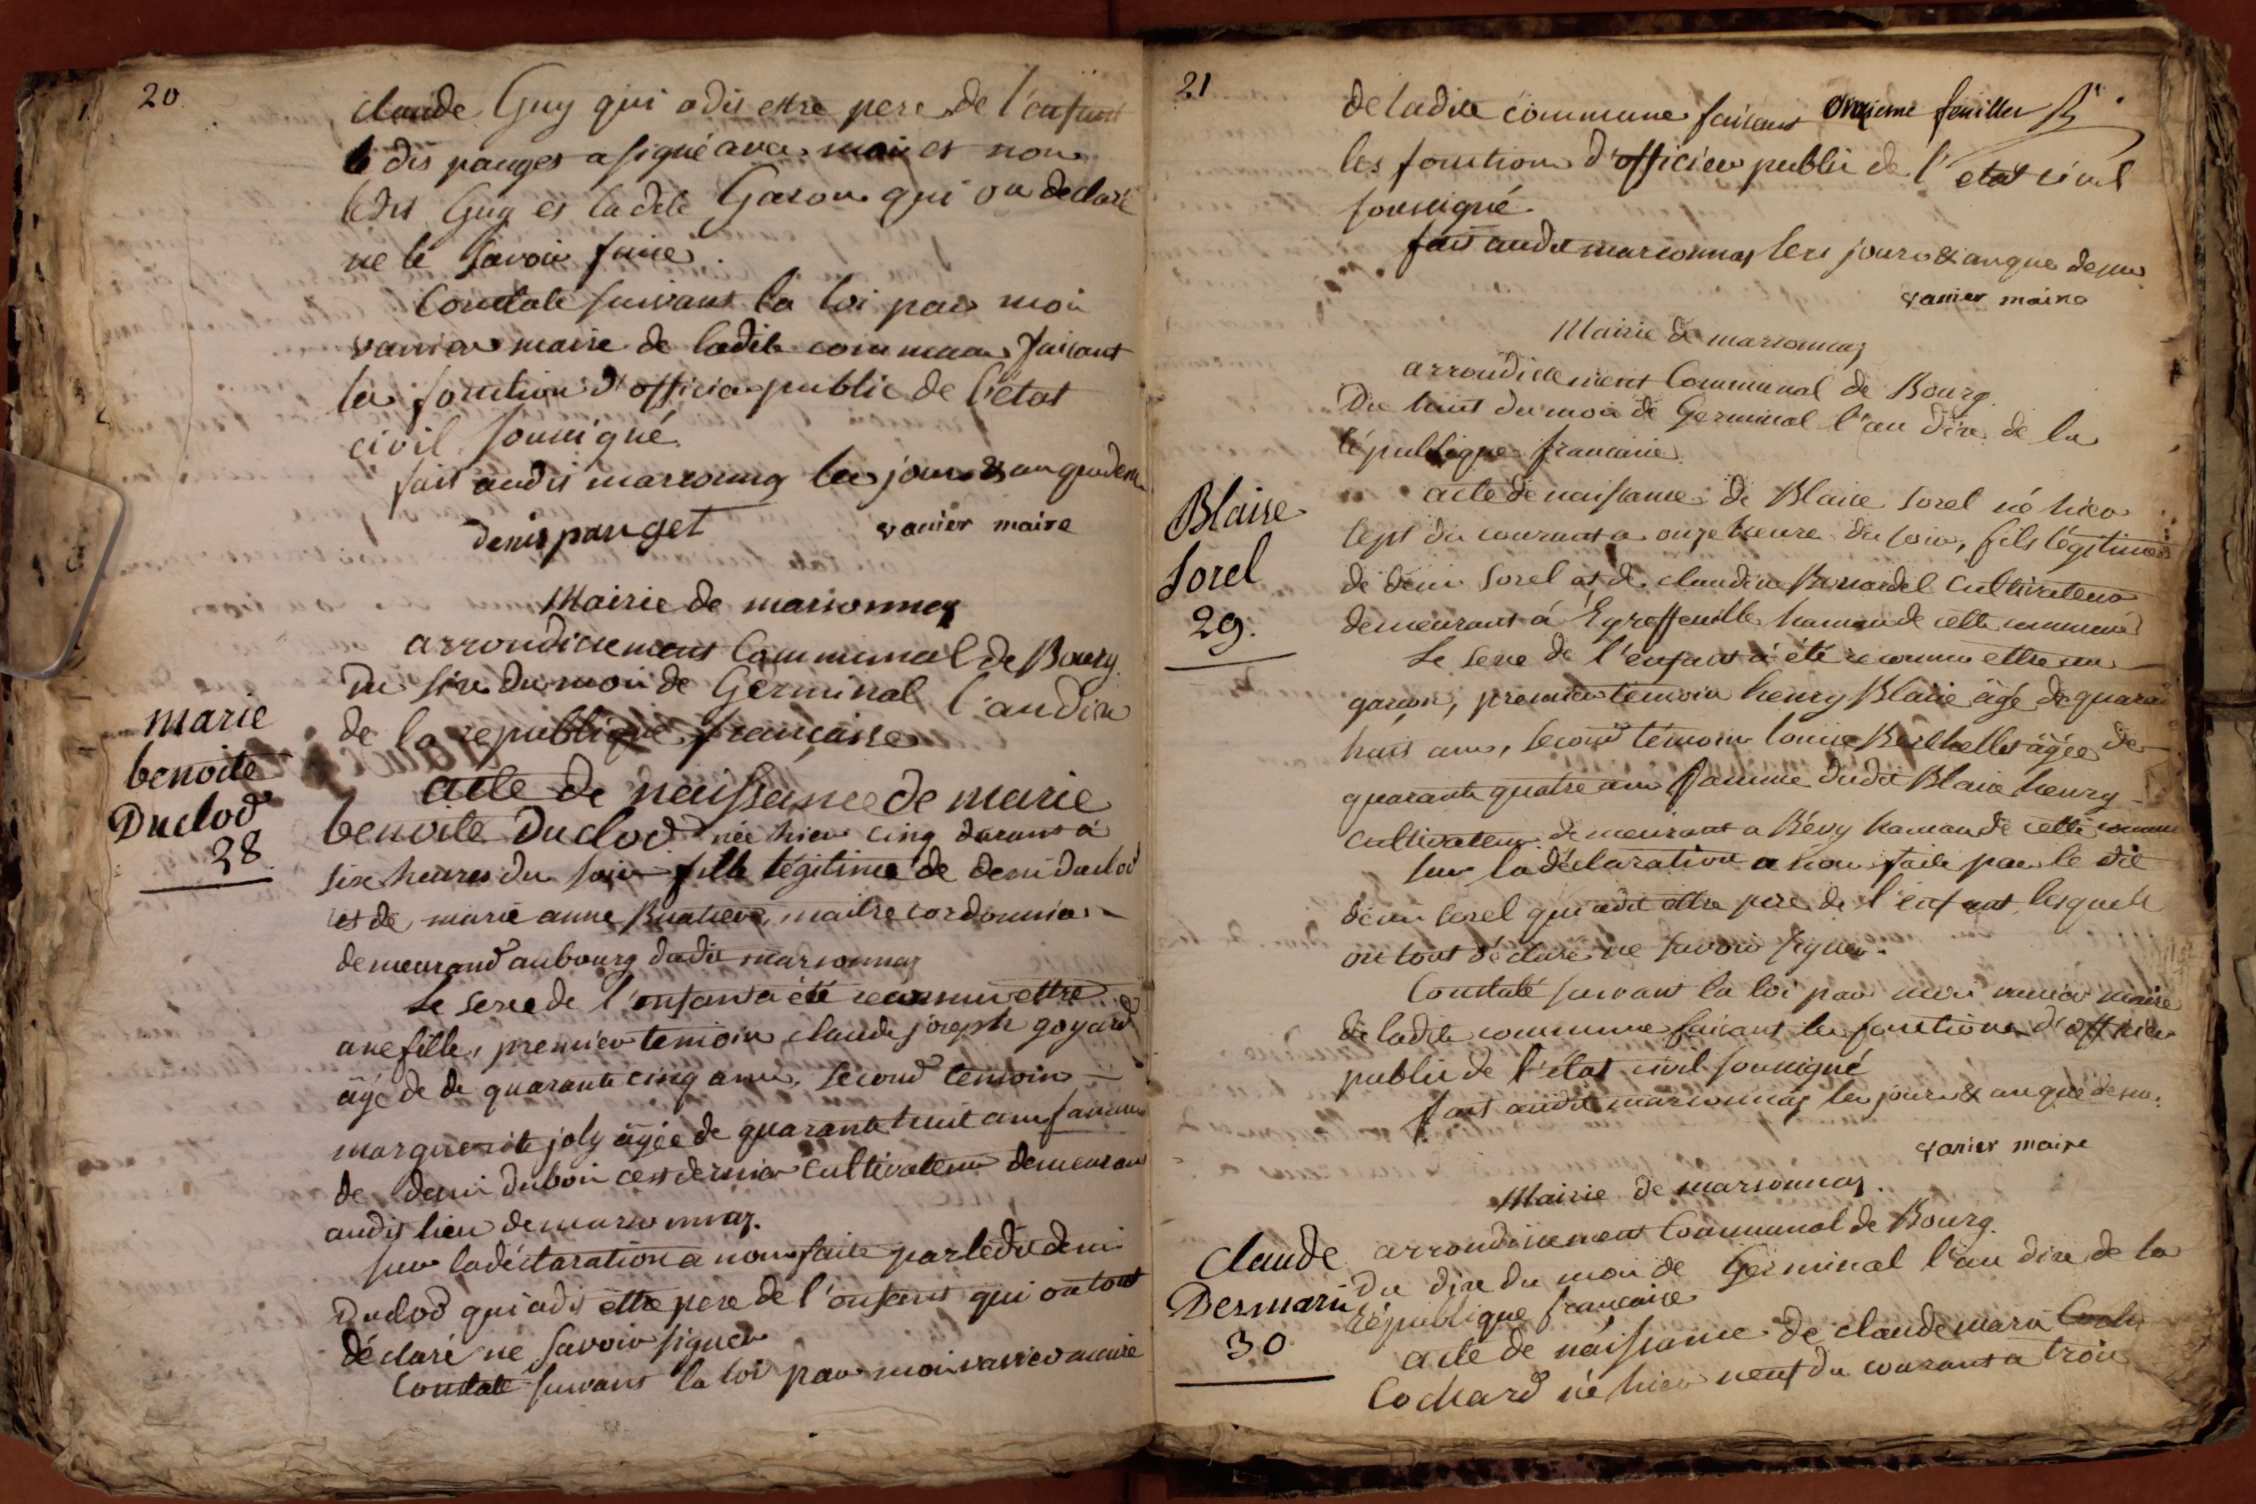 20
claude Guy qui a dit estre pere de l'enfant
le dis panget a signé avec moi et non
ledit Guy et ladite Garon qui on declaré
ne le savoir faire.
Constaté suivant la loi par moi
vanier maire de ladite commune faisant
les fonction d'officier public de l'état
civil soussigné.
fait audit marsonnas les jours & an que dessu
denis panget vanier maire
Mairie de marsonnas
arrondissement Communal de Bourg.
marie
benoite
Duclod
28
Du six du moi de Germinal l'an dix
de la république française
acte de naissance de marie
benoite Duclod née hier cinq du rant à
six heures du soir fille légitime de deni Duclod
et de marie anne maitre cordonnier
demeurand au bourg dudit marsonnas
Le sexe de l'enfant a été reconnu ettre
une fille, premier temoin claude joseph goyard
âgé de de quarante cinq ans, second temoin
marguerite joly âgée de quarante huit ans famme
de deni duboi ces dernier cultivateur demeurans
audit lieu de marsonnas.
sur la déclaration a nous faite par ledit deni
Duclod qui a dit ettre pere de l'enfant qui on tout
déclaré ne savoir signer
Constaté suivant la loi par moi vanier maire
21
onzieme feuillet
de ladite commune faisant
les fonction d'officier public de l'etat civil
soussigné.
fait audit marsonnas les jours & an que dessu
vanier maire
Mairie de marsonnas
arrondissement Communal de Bourg.
Du huit du moi de Germinal l'an dix de la
république francaise
Blaise
Sorel
29.
acte de naissance de Blaise Sorel né hier
sept du courant a onze heure du soir, fils légitime
de deni Sorel et de claudine cultivateur
demeurant à Egreffeuille hamau de cette commune
Le sexe de l'enfant a été reconnu ettre un
garçon, premier temoin henry Blaise âgé de quarante
huit ans, second temoin louise âgée de
quarante quatre ans famme dudit Blaise henry
cultivateur demeurant a Bévy hamau de cette commune
sur la déclaration a nous faite par le dit
deni Sorel qui a dit ettre pere de l'enfant lesquels
on tout déclaré ne savoir signer.
Constaté suivant la loi par moi vanier maire
de ladite commune faisant les fonction d'officier
public de l'état civil soussigné
fait audit marsonnas les jours & an que dessu.
vanier maire
Mairie de marsonnas.
arrondissement Communal de Bourg.
Claude
Desmari
30
Du dix du moi de Germinal l'an dix de la
république française
acte de naissance de claude mari
Cochard né hier neuf du courant a trois